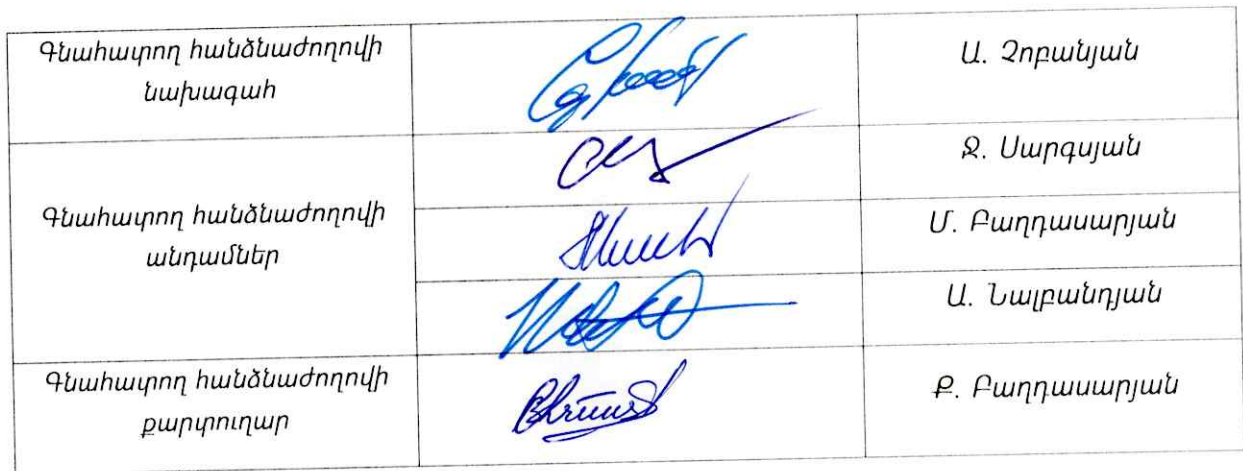 Գնահատող հանձնաժողովի
նախագահ
Ա. Չոբանյան
Ջ. Սարգսյան
Գնահատող հանձնաժողովի
անդամներ
Մ. Բաղդասարյան
Ա. Նալբանդյան
Գնահատող հանձնաժողովի
քարտուղար
Ք. Բաղդասարյան